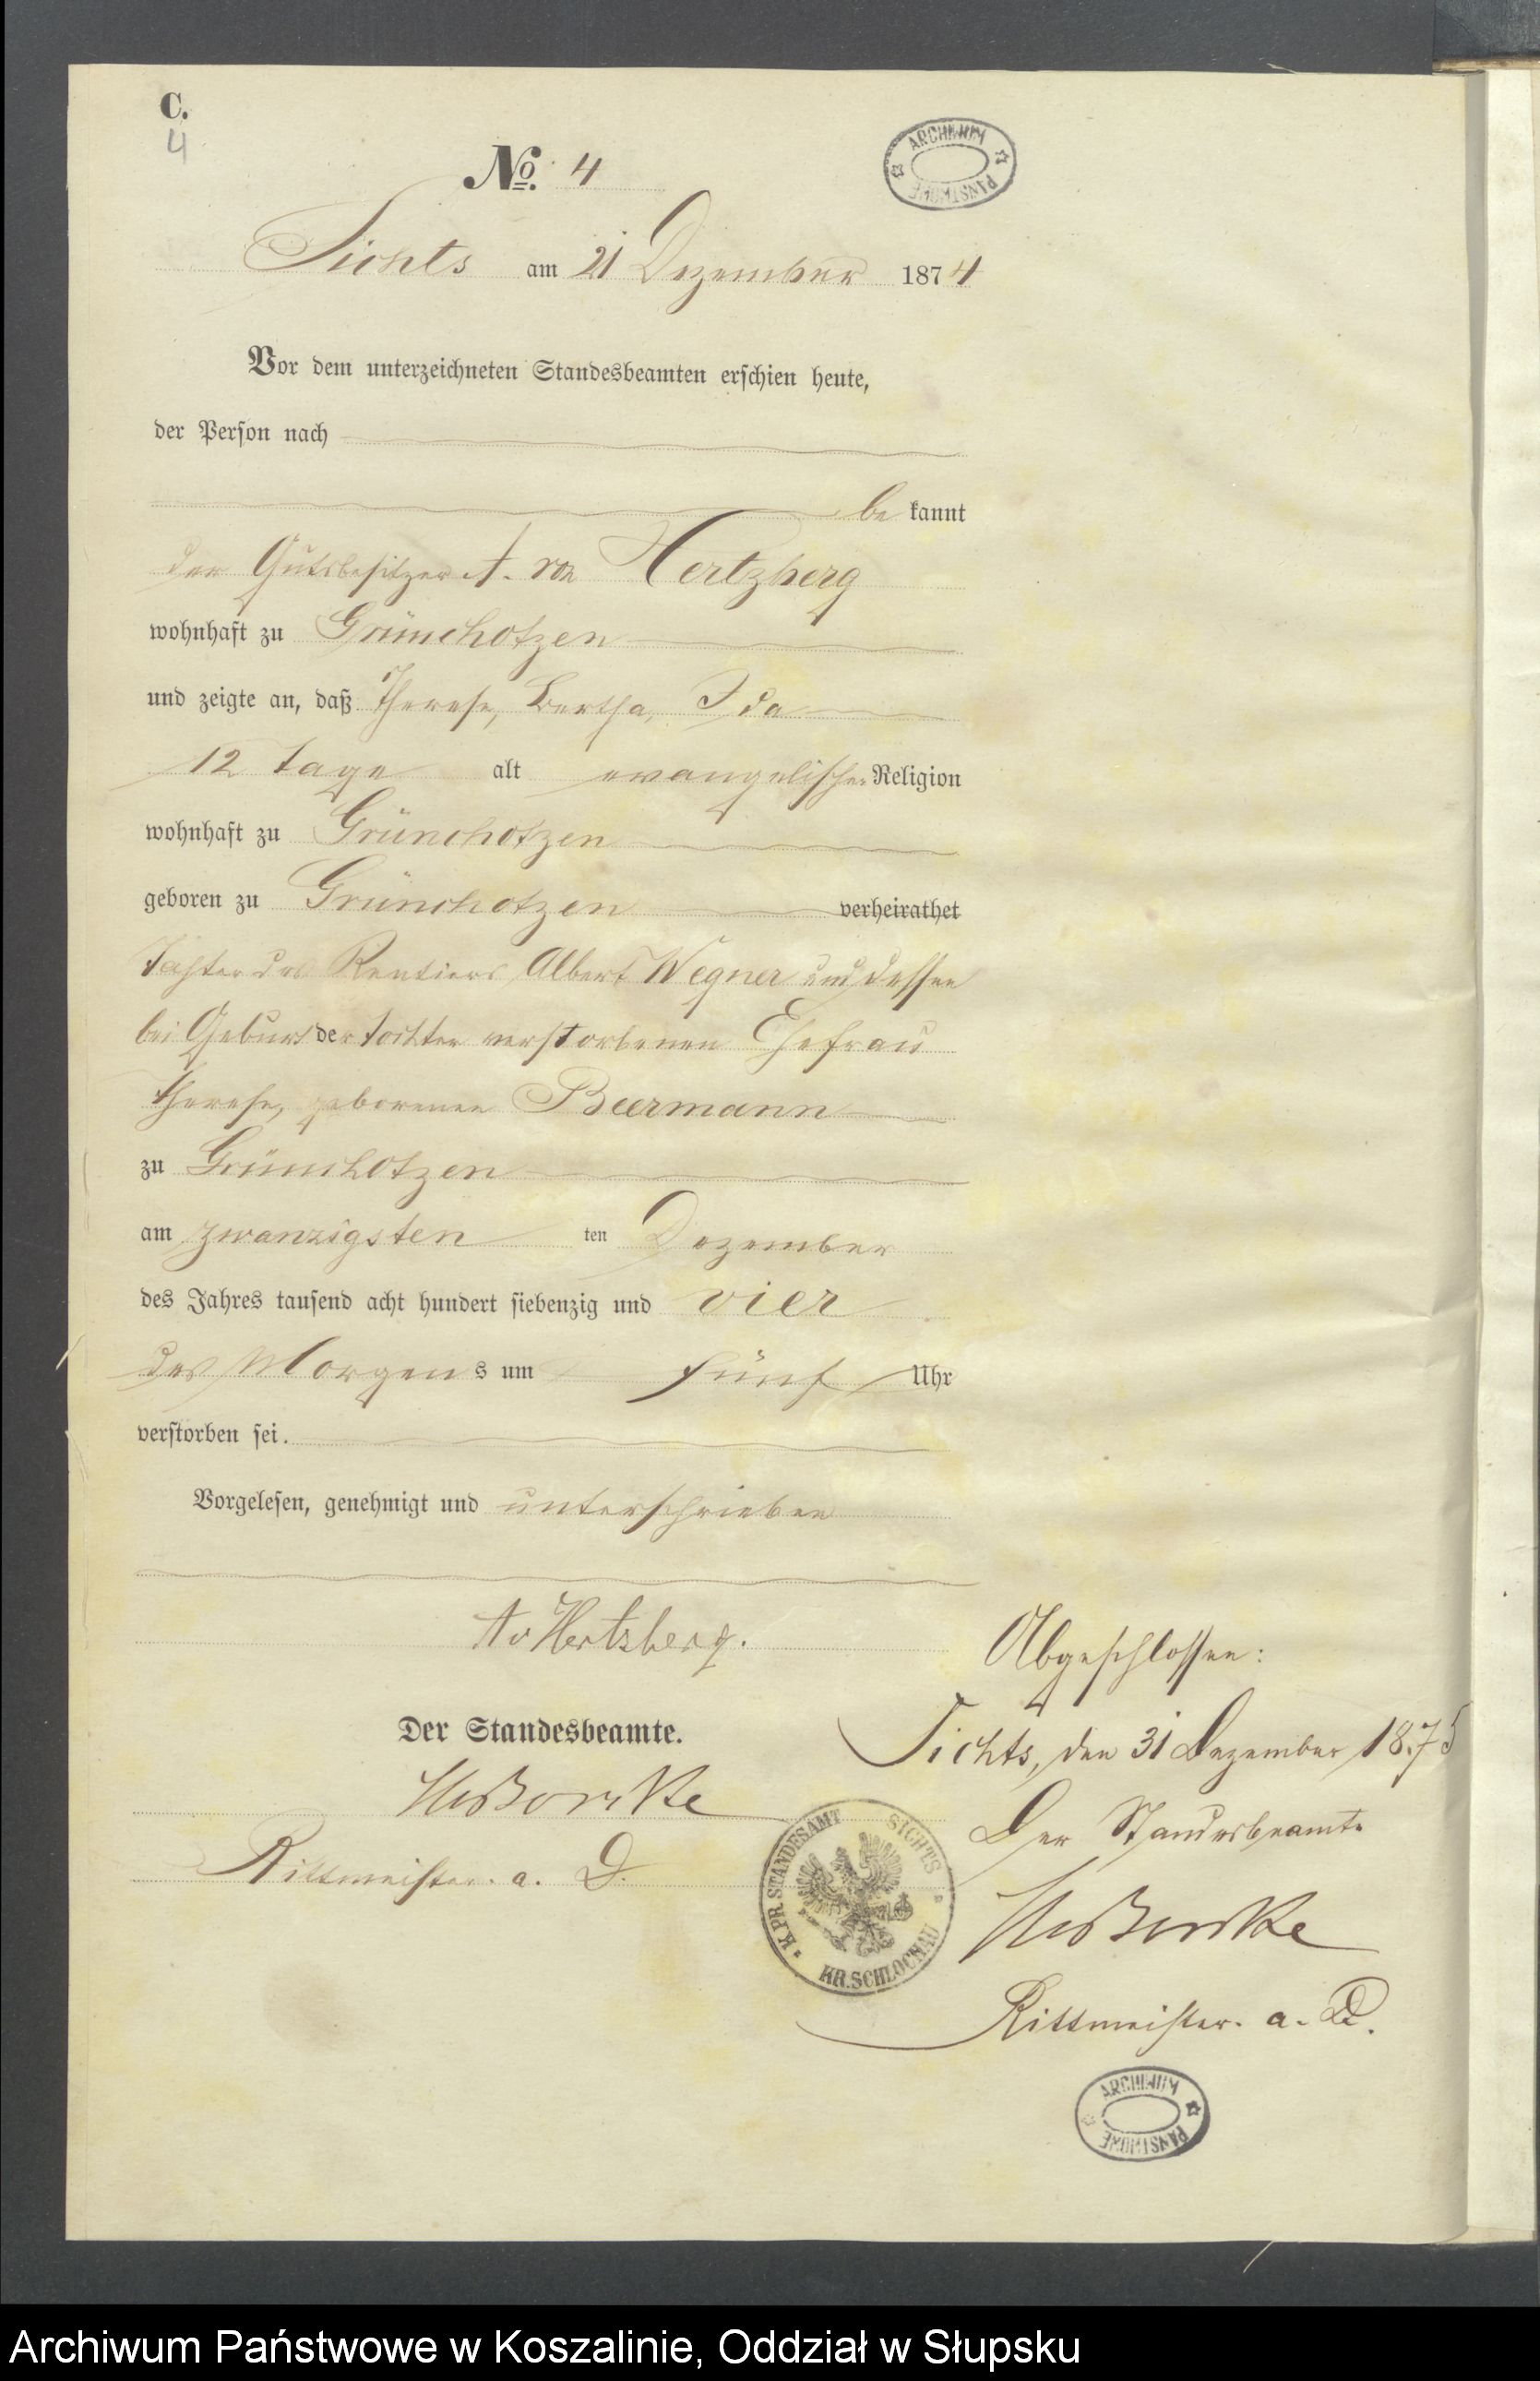 C.
4
No. 4
ARCHIWUM PAŃSTWOWE
Sichts am 21 Dezember 1874
Vor dem unterzeichneten Standesbeamten erschien heute,
der Person nach
be kannt
der Gutsbesitzer A. von Hertzberg
wohnhaft zu Grünchotzen
und zeigte an, daß Therese, Bertha, Ida
12 Tage alt evangelischer Religion
wohnhaft zu Grünchotzen
geboren zu Grünchotzen verheirathet
Tochter des Rentiers Albert Wegner und dessen
bei Geburt der Tochter verstorbenen Ehefrau
Therese, geborenen Beermann
zu Grünchotzen
am zwanzigsten ten Dezember
des Jahres tausend acht hundert siebenzig und vier
des Morgens um fünf Uhr
verstorben sei.
Vorgelesen, genehmigt und unterschrieben
A v Hertzberg.
Der Standesbeamte.
Borcke
Rittmeister. a. D.
Abgeschlossen:
Sichts, den 31 Dezember 1875
Der Standesbeamte
Borcke
Rittmeister. a. D.
K. PR. STANDESAMT SICHTS KR. SCHLOCHAU
ARCHIWUM PAŃSTWOWE
Archiwum Państwowe w Koszalinie, Oddział w Słupsku